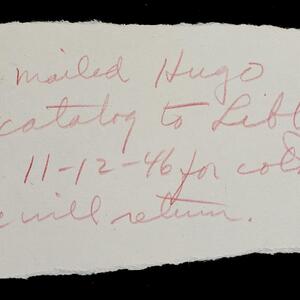 mailed Hugo
catalog to
11-12-46 for
will return.